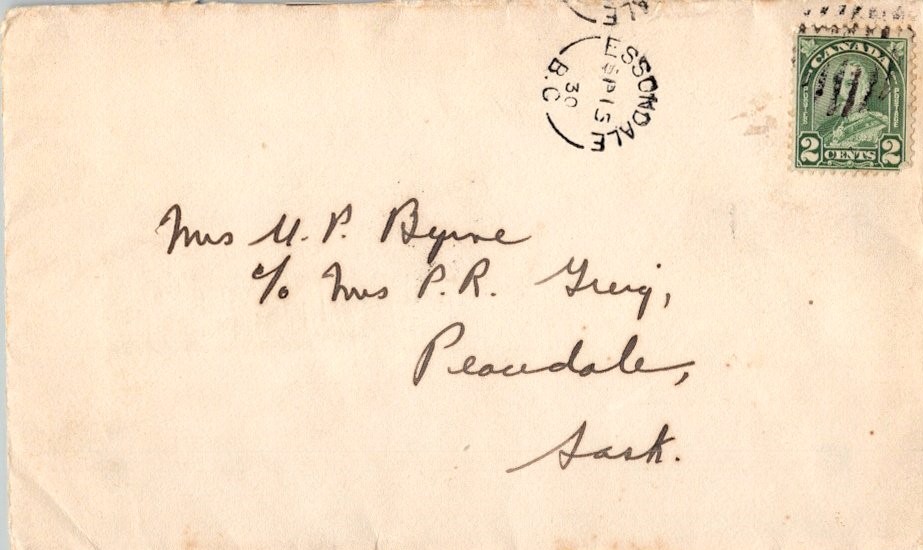 ESSONDALE
AP 15
30
B.C
CANADA
2 CENTS 2
Mrs M. P. Byrne
c/o Mrs P. R. Greig,
Peacedale,
Sask.